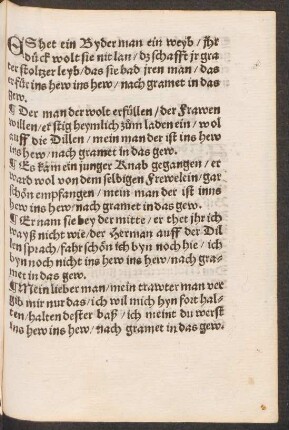 ES het ein Byderman ein weyb / jhr
dück wolt sie nit lan / dz schafft jr gra
der stoltzer leyb / das sie bad jren man / das
er für ins hew ins hew / nach gramet in das
gew.
¶ Der man der wolt erfüllen / der Frawen
willen / er stig heymlich zům laden ein / wol
auff die Dillen / mein man der ist ins hew
ins hew / nach gramet in das gew.
¶ Es kam ein junger Knab gegangen / er
ward wol von dem selbigen Frewelein / gar
schön empfangen / mein man der ist inns
hew ins hew / nach gramet in das gew.
¶ Er nam sie bey der mitte / er thet jhr ich
wayß nicht wie / der Herman auff der Dil
len sprach / fahr schön ich byn noch hie / ich
byn noch nicht ins hew ins hew / nach gra-
met in das gew.
¶ Mein lieber man / mein trawter man ver
gib mir nur das / ich wil mich hyn fort hal-
ten / halten dester baß / ich meint du werst
ins hew ins hew / nach gramet in das gew.